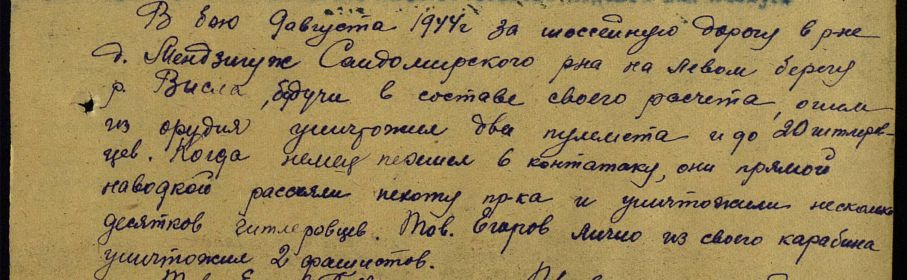 В бою 9 августа 1944г за шоссейную дорогу в р-не
д. Мендзигуж Сандомирского р-на на левом берегу
р. Висла, будучи в составе своего расчета, огнем
из орудия уничтожил два пулемета и до 20 гитлеров-
цев. Когда немец пошел в контатаку, они прямой
наводкой рассеяли пехоту пр-ка и уничтожили несколько
десятков гитлеровцев. Тов. Егоров лично из своего карабина
уничтожил 2 фашистов.